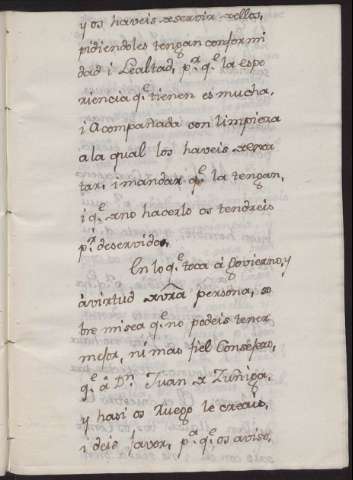 y os haveis de servir de ellos,
pidiendoles tengan conformi
dad i Lealtad, p.r q.e la espe
riencia q.e tienen es mucha,
i Acompañada con Limpieza
a la qual los haveis de exor
tar, i mandar q.e la tengan,
i q.e de no hacerlo os tendreis
p.r deservido.
En lo q.e toca á Govierno, y
á virtud de vrâ persona, so
bre mi sea q.e no podeis tener
mejor, ni mas fiel Consejero,
q.e á D.n Juan de Zuñiga,
y hasi os Ruego le creais,
i deis favor, p.a q.e os avise,